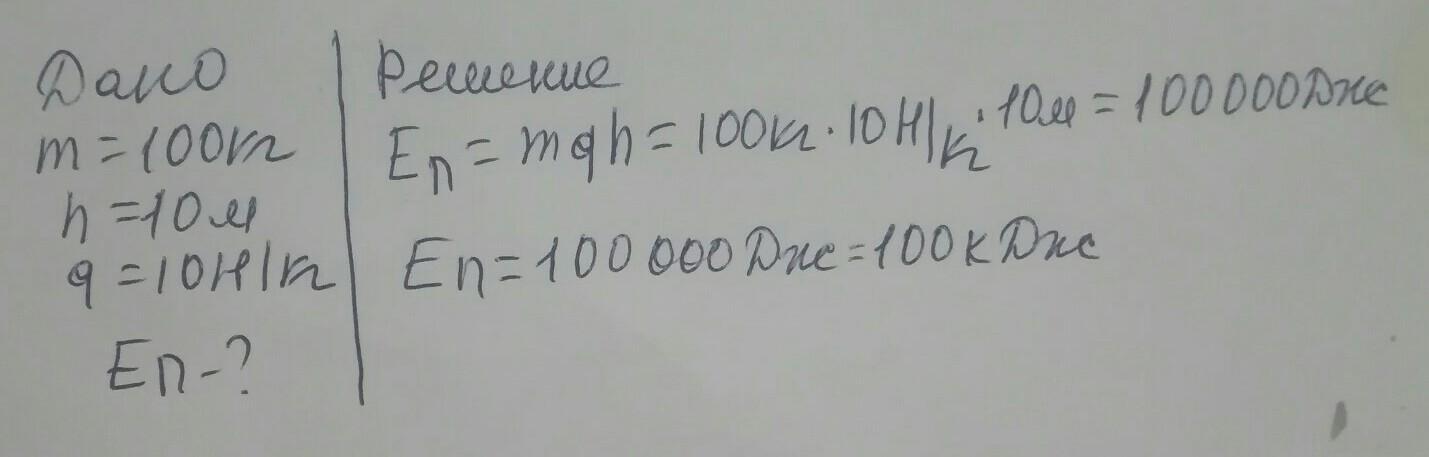 Дано
m=100кг
h=10м
g=10Н/кг
Eп-?
Решение
Eп=mgh=100кг·10Н/кг·10м=100000Дж
Eп=100 000Дж=100кДж